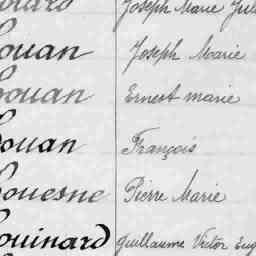 Joseph Marie
ouan Joseph Marie
ouan Ernest marie
ouan François
ouesne Pierre Marie
ouinard Guillaume Victor Eug